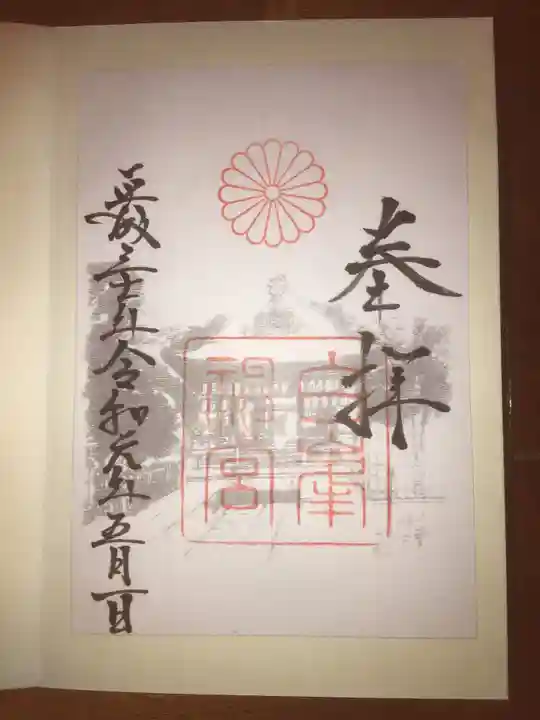 奉拝
白峯
神宮
平成三十一年令和元年五月一日